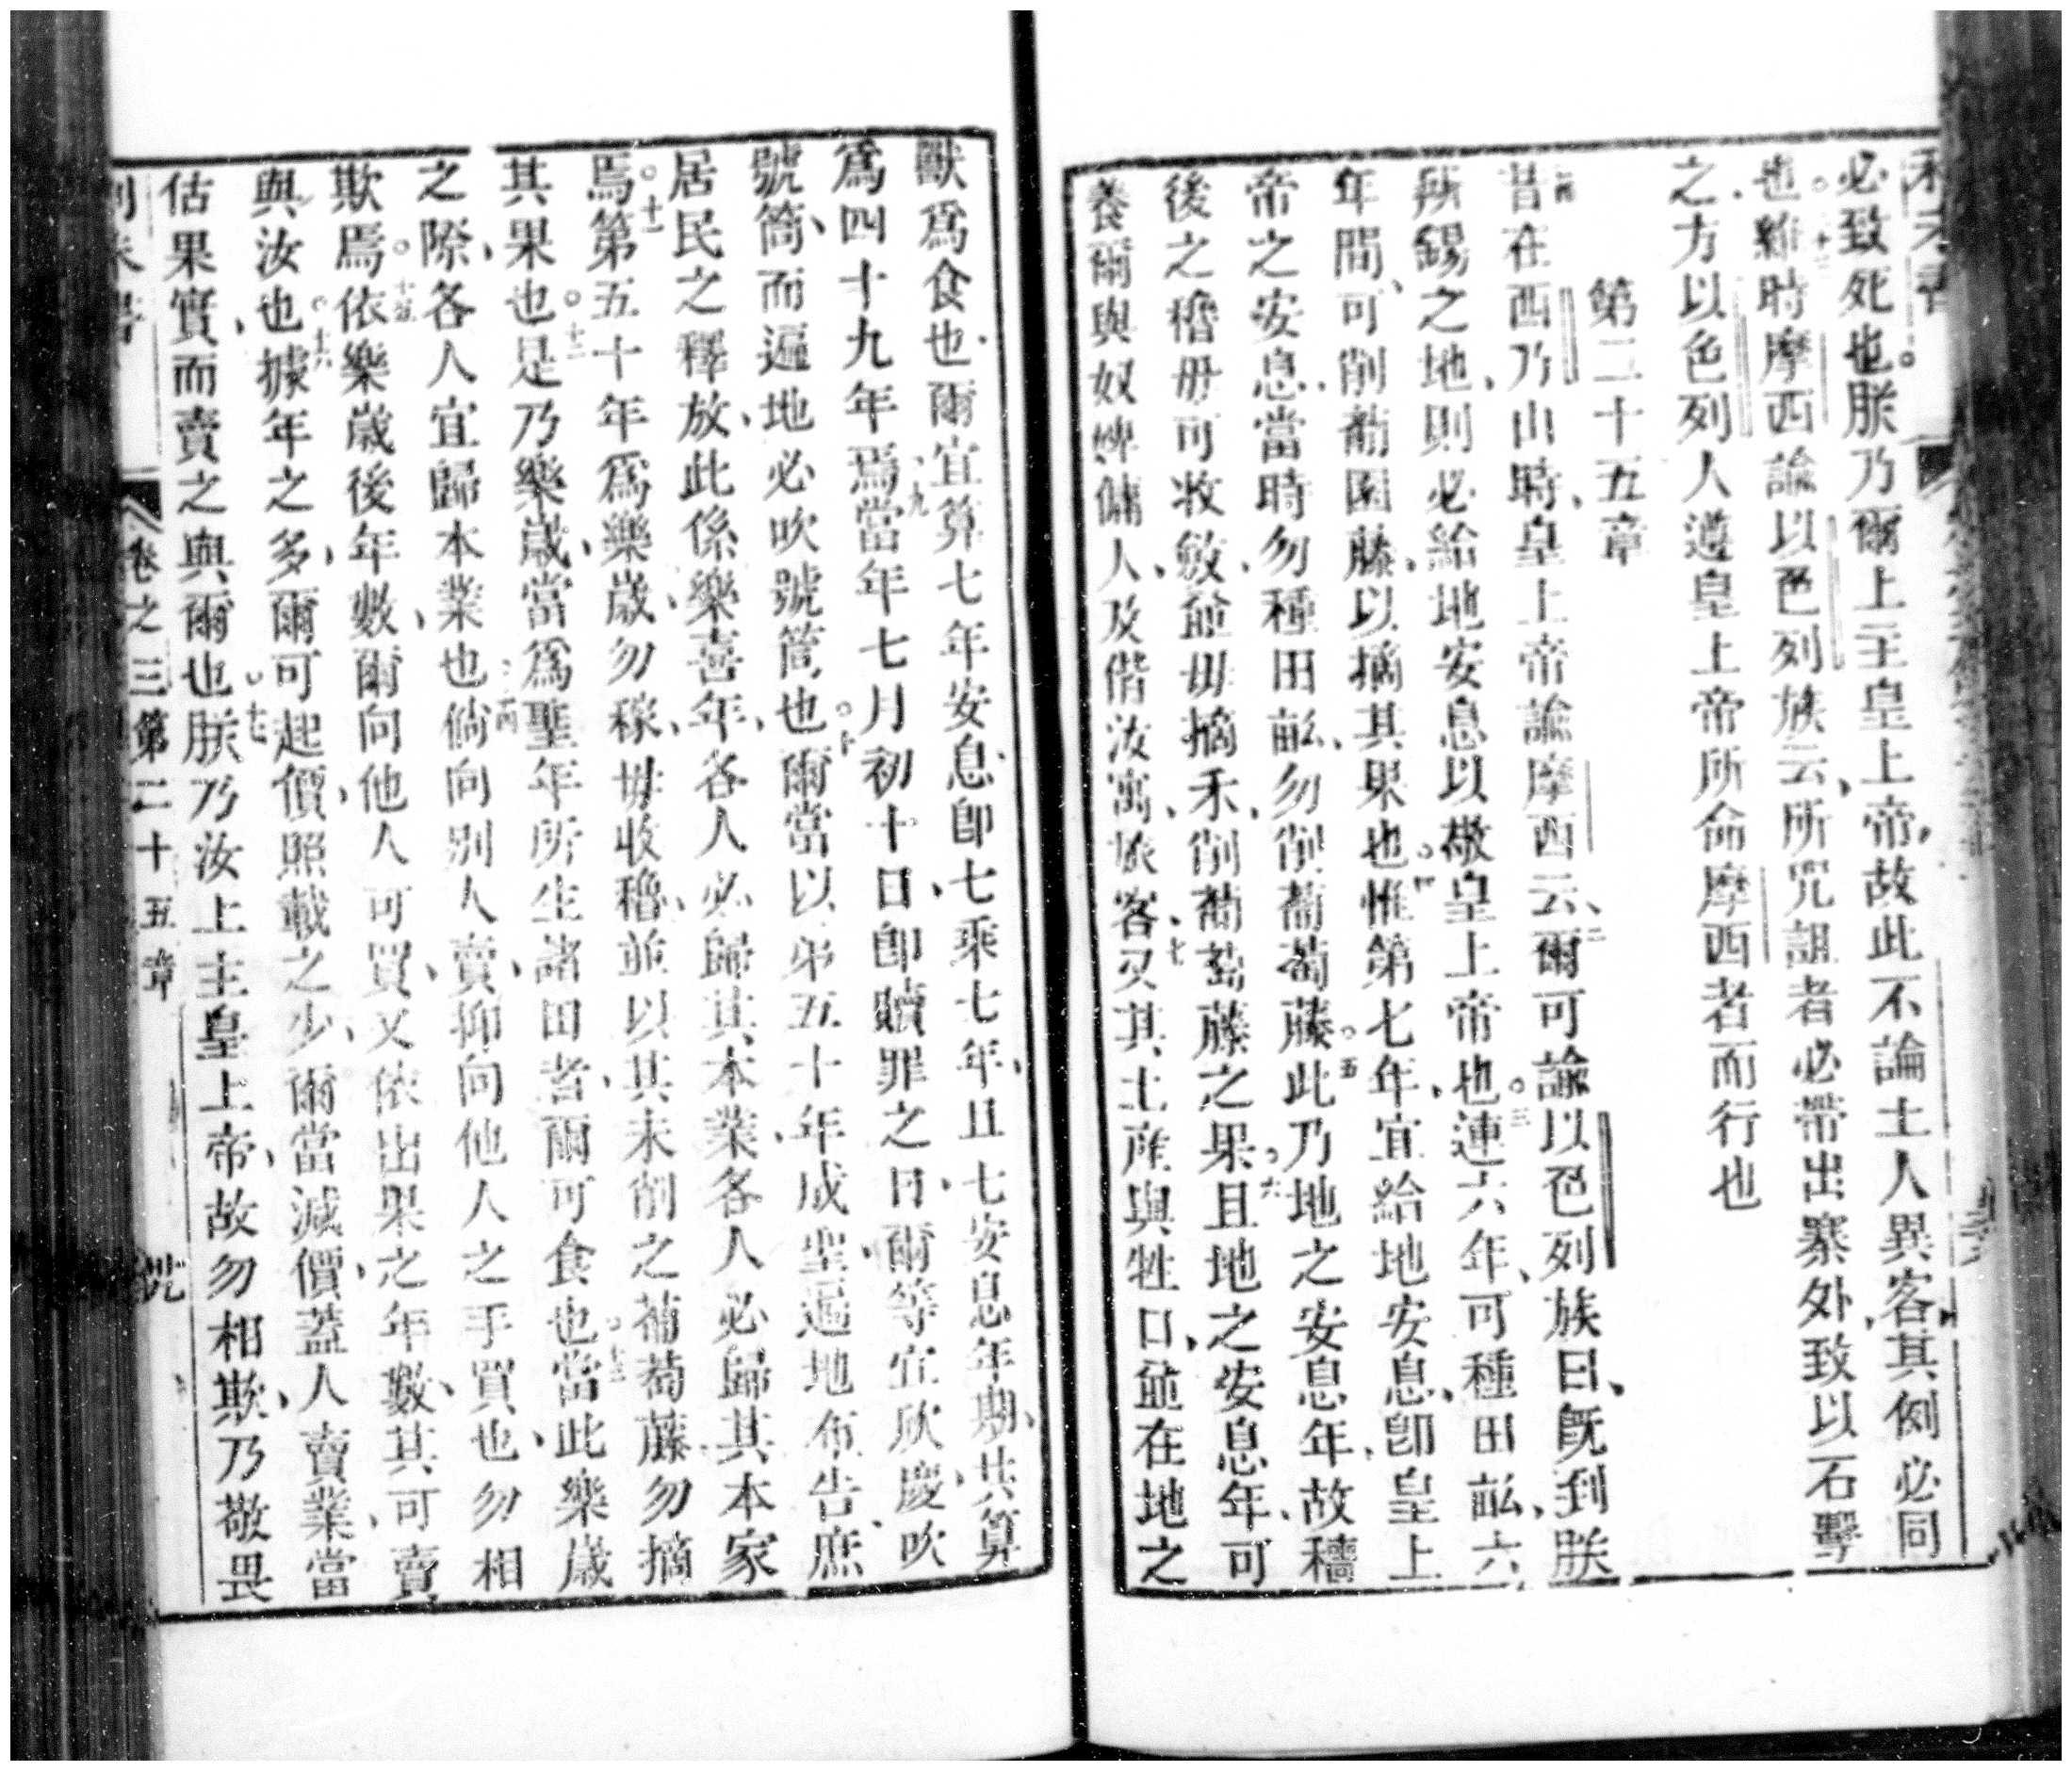 必致死也朕乃爾上主皇上帝故此不論土人異客其例必同
也○十三維時摩西諭以色列族云所咒詛者必帶出寨外致以石擊
之方以色列人遵皇上帝所命摩西者而行也
第二十五章
昔在西乃山時皇上帝諭摩西云二爾可諭以色列族曰既到朕
所錫之地則必給地安息以敬皇上帝也○三連六年可種田畝六
年間可削葡園藤以摘其果也○四惟第七年宜給地安息卽皇上
帝之安息當時勿種田畝勿削葡萄藤○五此乃地之安息年故穡
後之穭毋可收斂並毋摘禾削葡萄藤之果○六且地之安息年可
養爾與奴婢傭人及偕汝寓旅客七又其土產與牲口並在地之
獸爲食也爾宜算七年安息卽七乘七年且七安息年期共算
爲四十九年焉九當年七月初十日卽贖罪之日爾等宜欣慶吹
號筒而遍地必吹號筒也○十爾當以第五十年成聖遍地布告庶
居民之釋放此係樂喜年各人必歸其本業各人必歸其本家
焉○十一第五十年爲樂歲勿稼毋收穭並以其未削之葡萄藤勿摘
其果也○十二是乃樂歲當爲聖年所生諸田者爾可食也○十三當此樂歲
之際各人宜歸本業也十四倘向別人賣抑向他人之手買也勿相
欺焉○十五依樂歲後年數爾向他人可買又依出果之年數其可賣
與汝也○十六據年之多爾可起價照載之少爾當減價蓋人賣業當
估果實而賣之與爾也○十七朕乃汝上主皇上帝故勿相欺乃敬畏
卷之三第二十五章